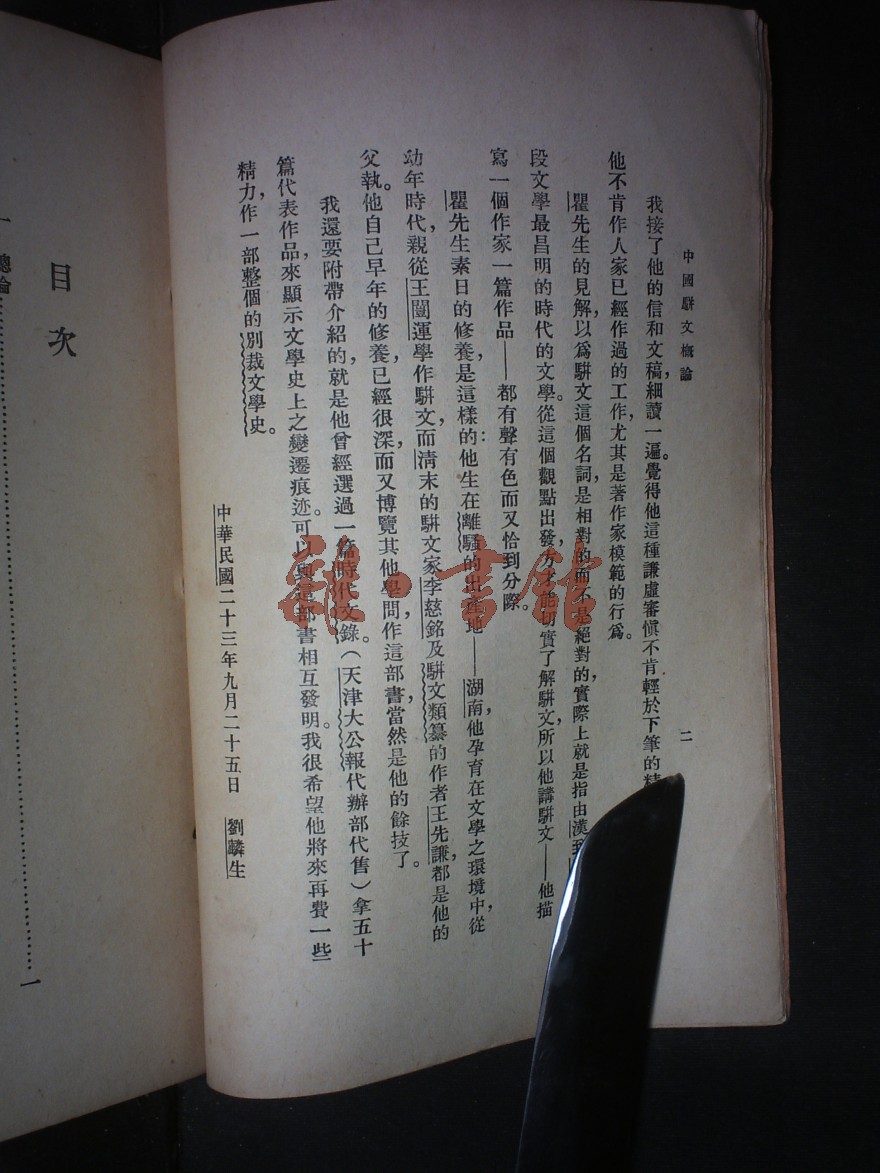 中國駢文概論
二
我接了他的信和文稿，細讀一遍。覺得他這種謙虛審愼不肯輕於下筆的精
他不肯作人家已經作過的工作，尤其是著作家模範的行爲。
瞿先生的見解，以爲駢文這個名詞，是相對的而不是絕對的，實際上就是指由漢至
段文學最昌明的時代的文學。從這個觀點出發，方才能切實了解駢文，所以他講駢文——他描
寫一個作家一篇作品——都有聲有色而又恰到分際。
瞿先生素日的修養，是這樣的：他生在離騷的出產地——湖南，他孕育在文學之環境中，從
幼年時代，親從王闓運學作駢文，而清末的駢文家李慈銘及駢文類纂的作者王先謙，都是他的
父執。他自己早年的修養，已經很深，而又博覽其他學問，作這部書，當然是他的餘技了。
我還要附帶介紹的，就是他曾經選過一篇時代文錄。（天津大公報代辦部代售）拿五十
篇代表作品，來顯示文學史上之變遷痕迹。可以與這部書相互發明。我很希望他將來再費一些
精力，作一部整個的別裁文學史。
中華民國二十三年九月二十五日　劉麟生
目次
一　總論……………………………………一